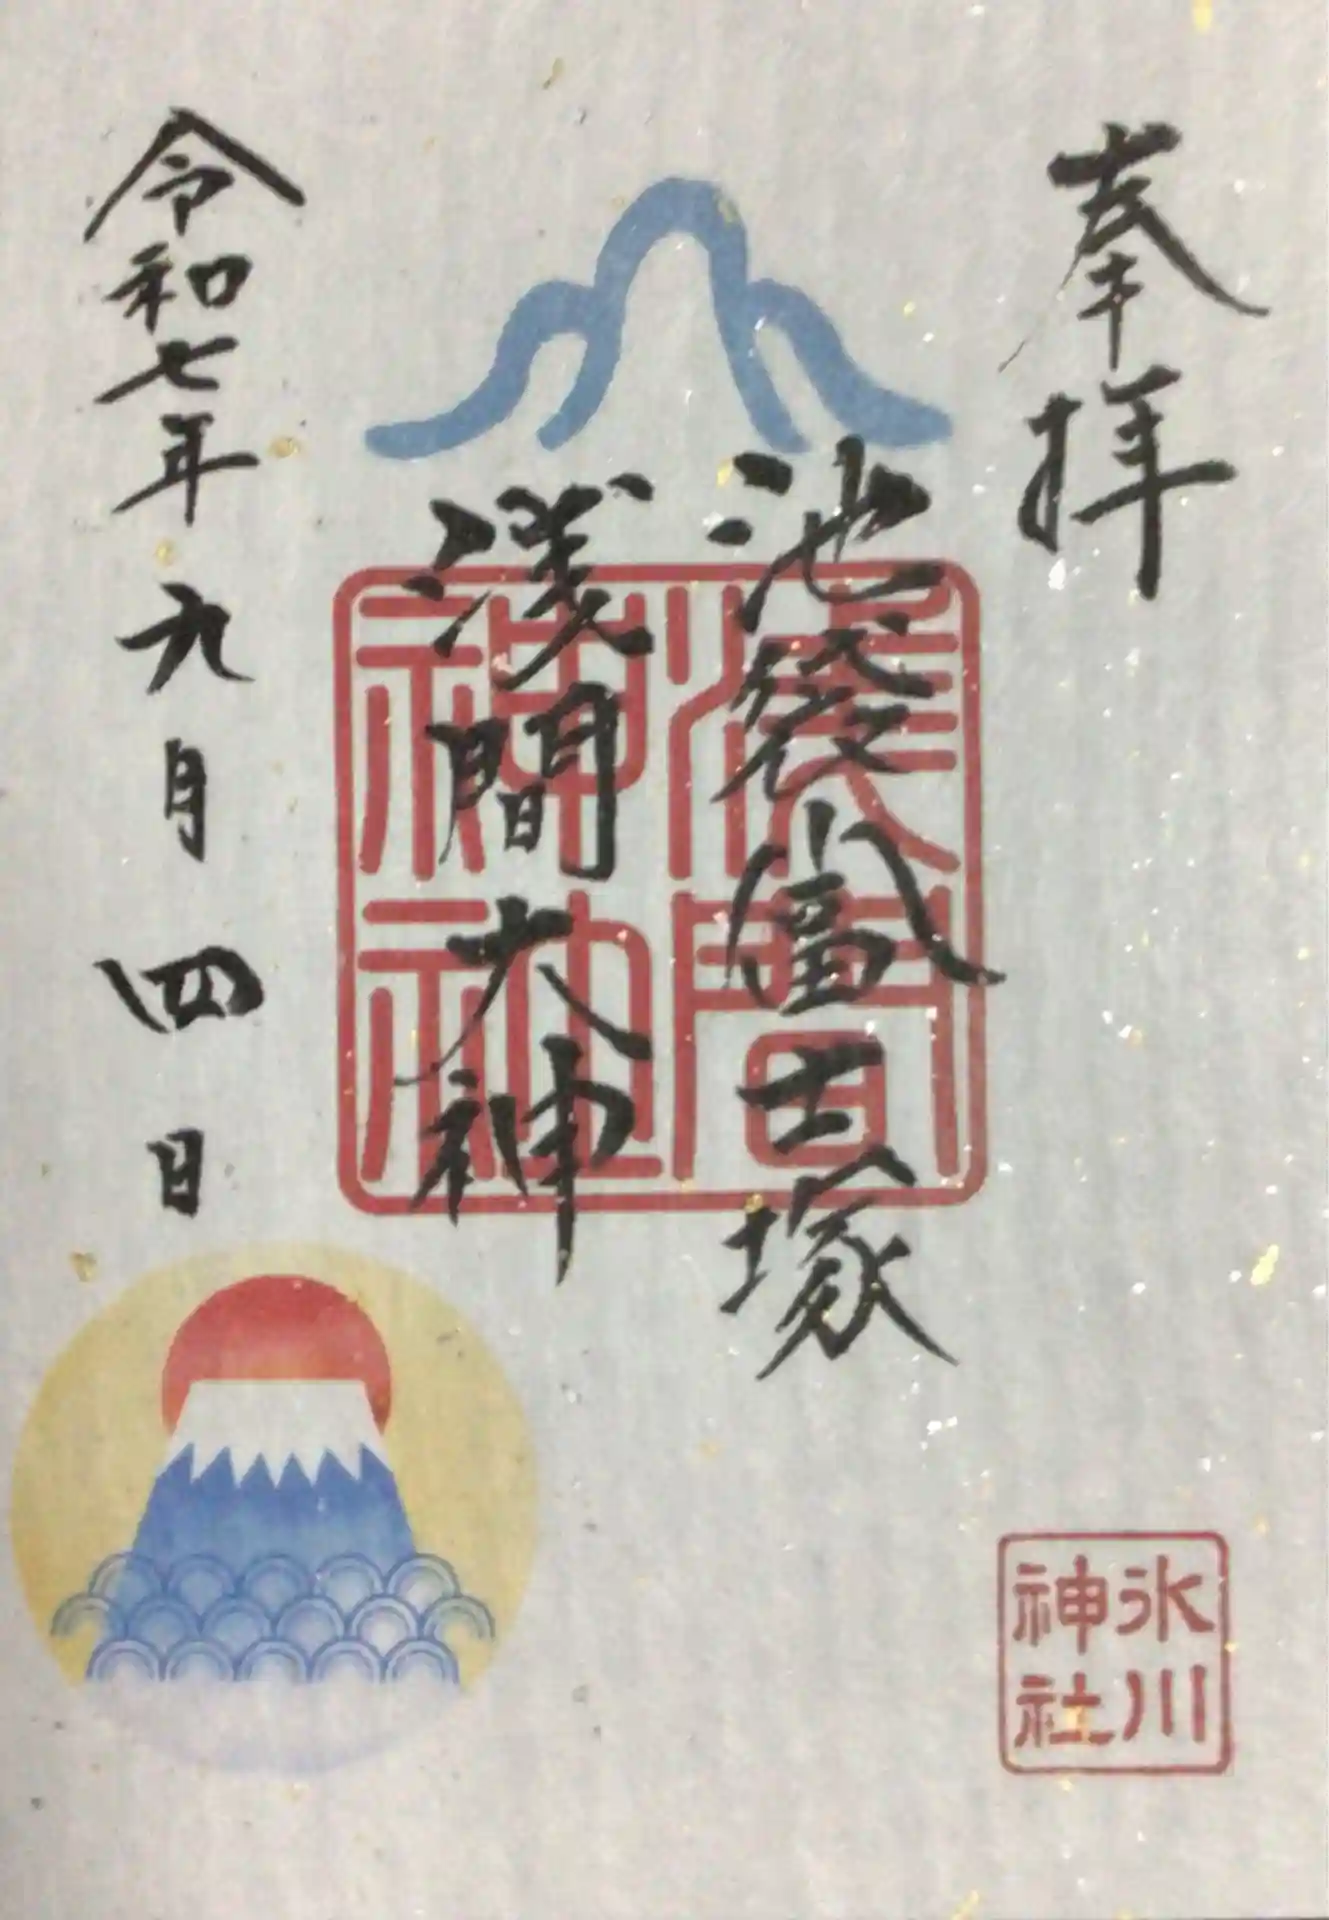 奉拝
池袋富士塚
浅間大神
令和七年九月四日
浅間
神社
氷川
神社